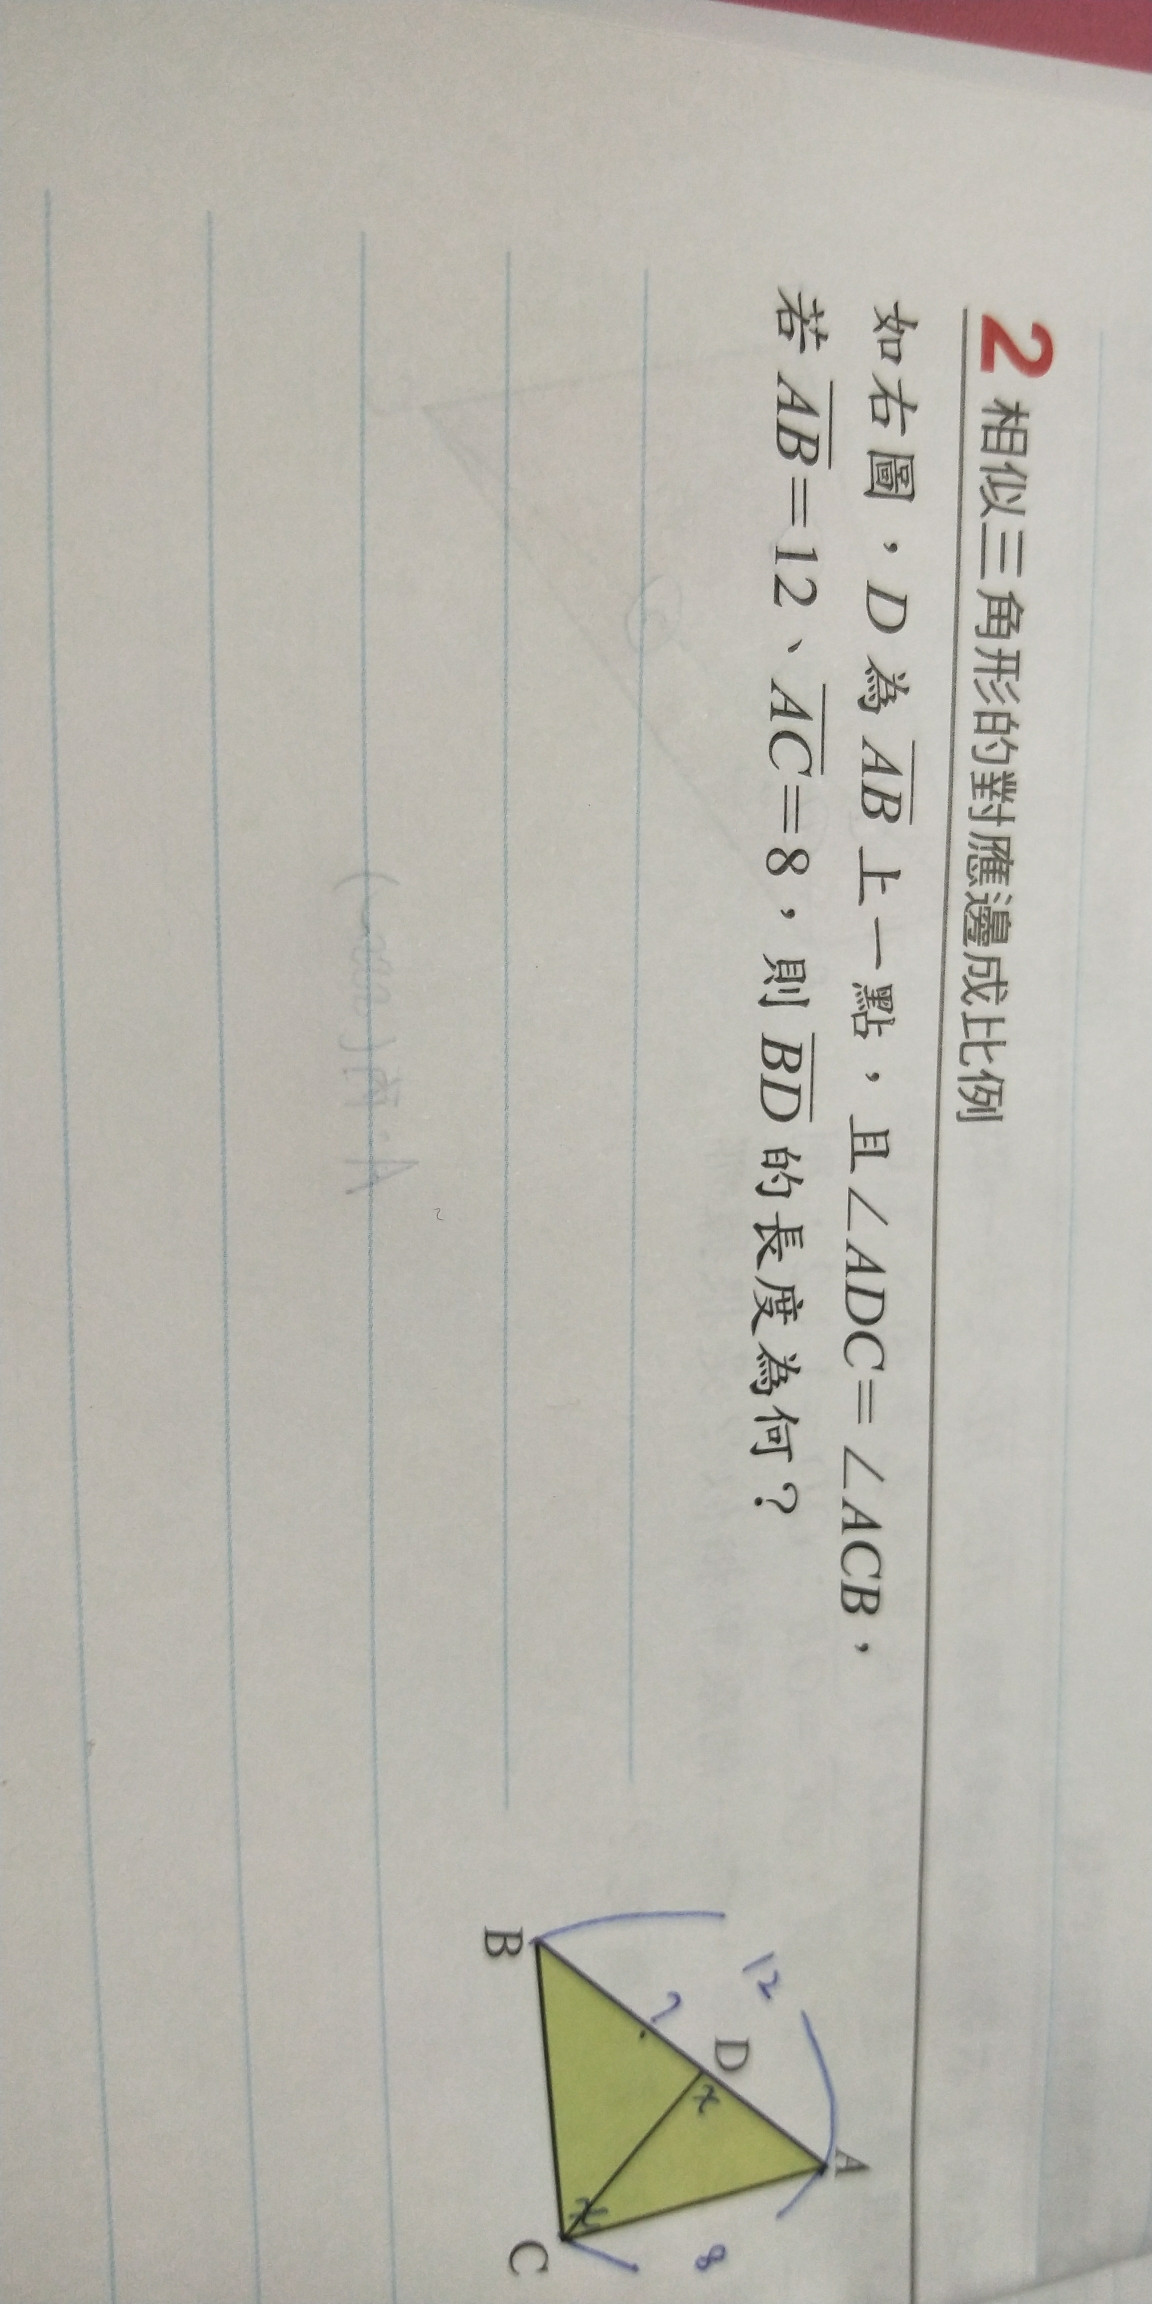 2 相似三角形的對應邊成比例
如右圖，D 為 AB 上一點，且∠ADC=∠ACB，
若 AB=12、AC=8，則 BD 的長度為何？
A
12
D
x
?
8
x
B
C